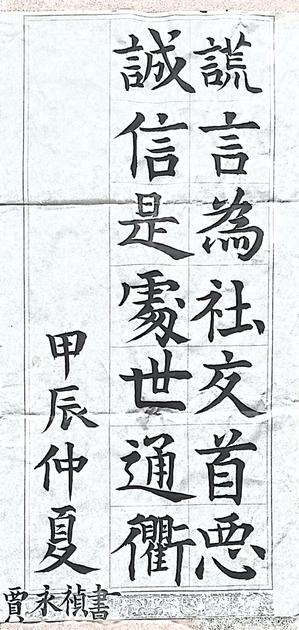 謊言為社交首恶
誠信是處世通衢
甲辰仲夏
賈永禎書